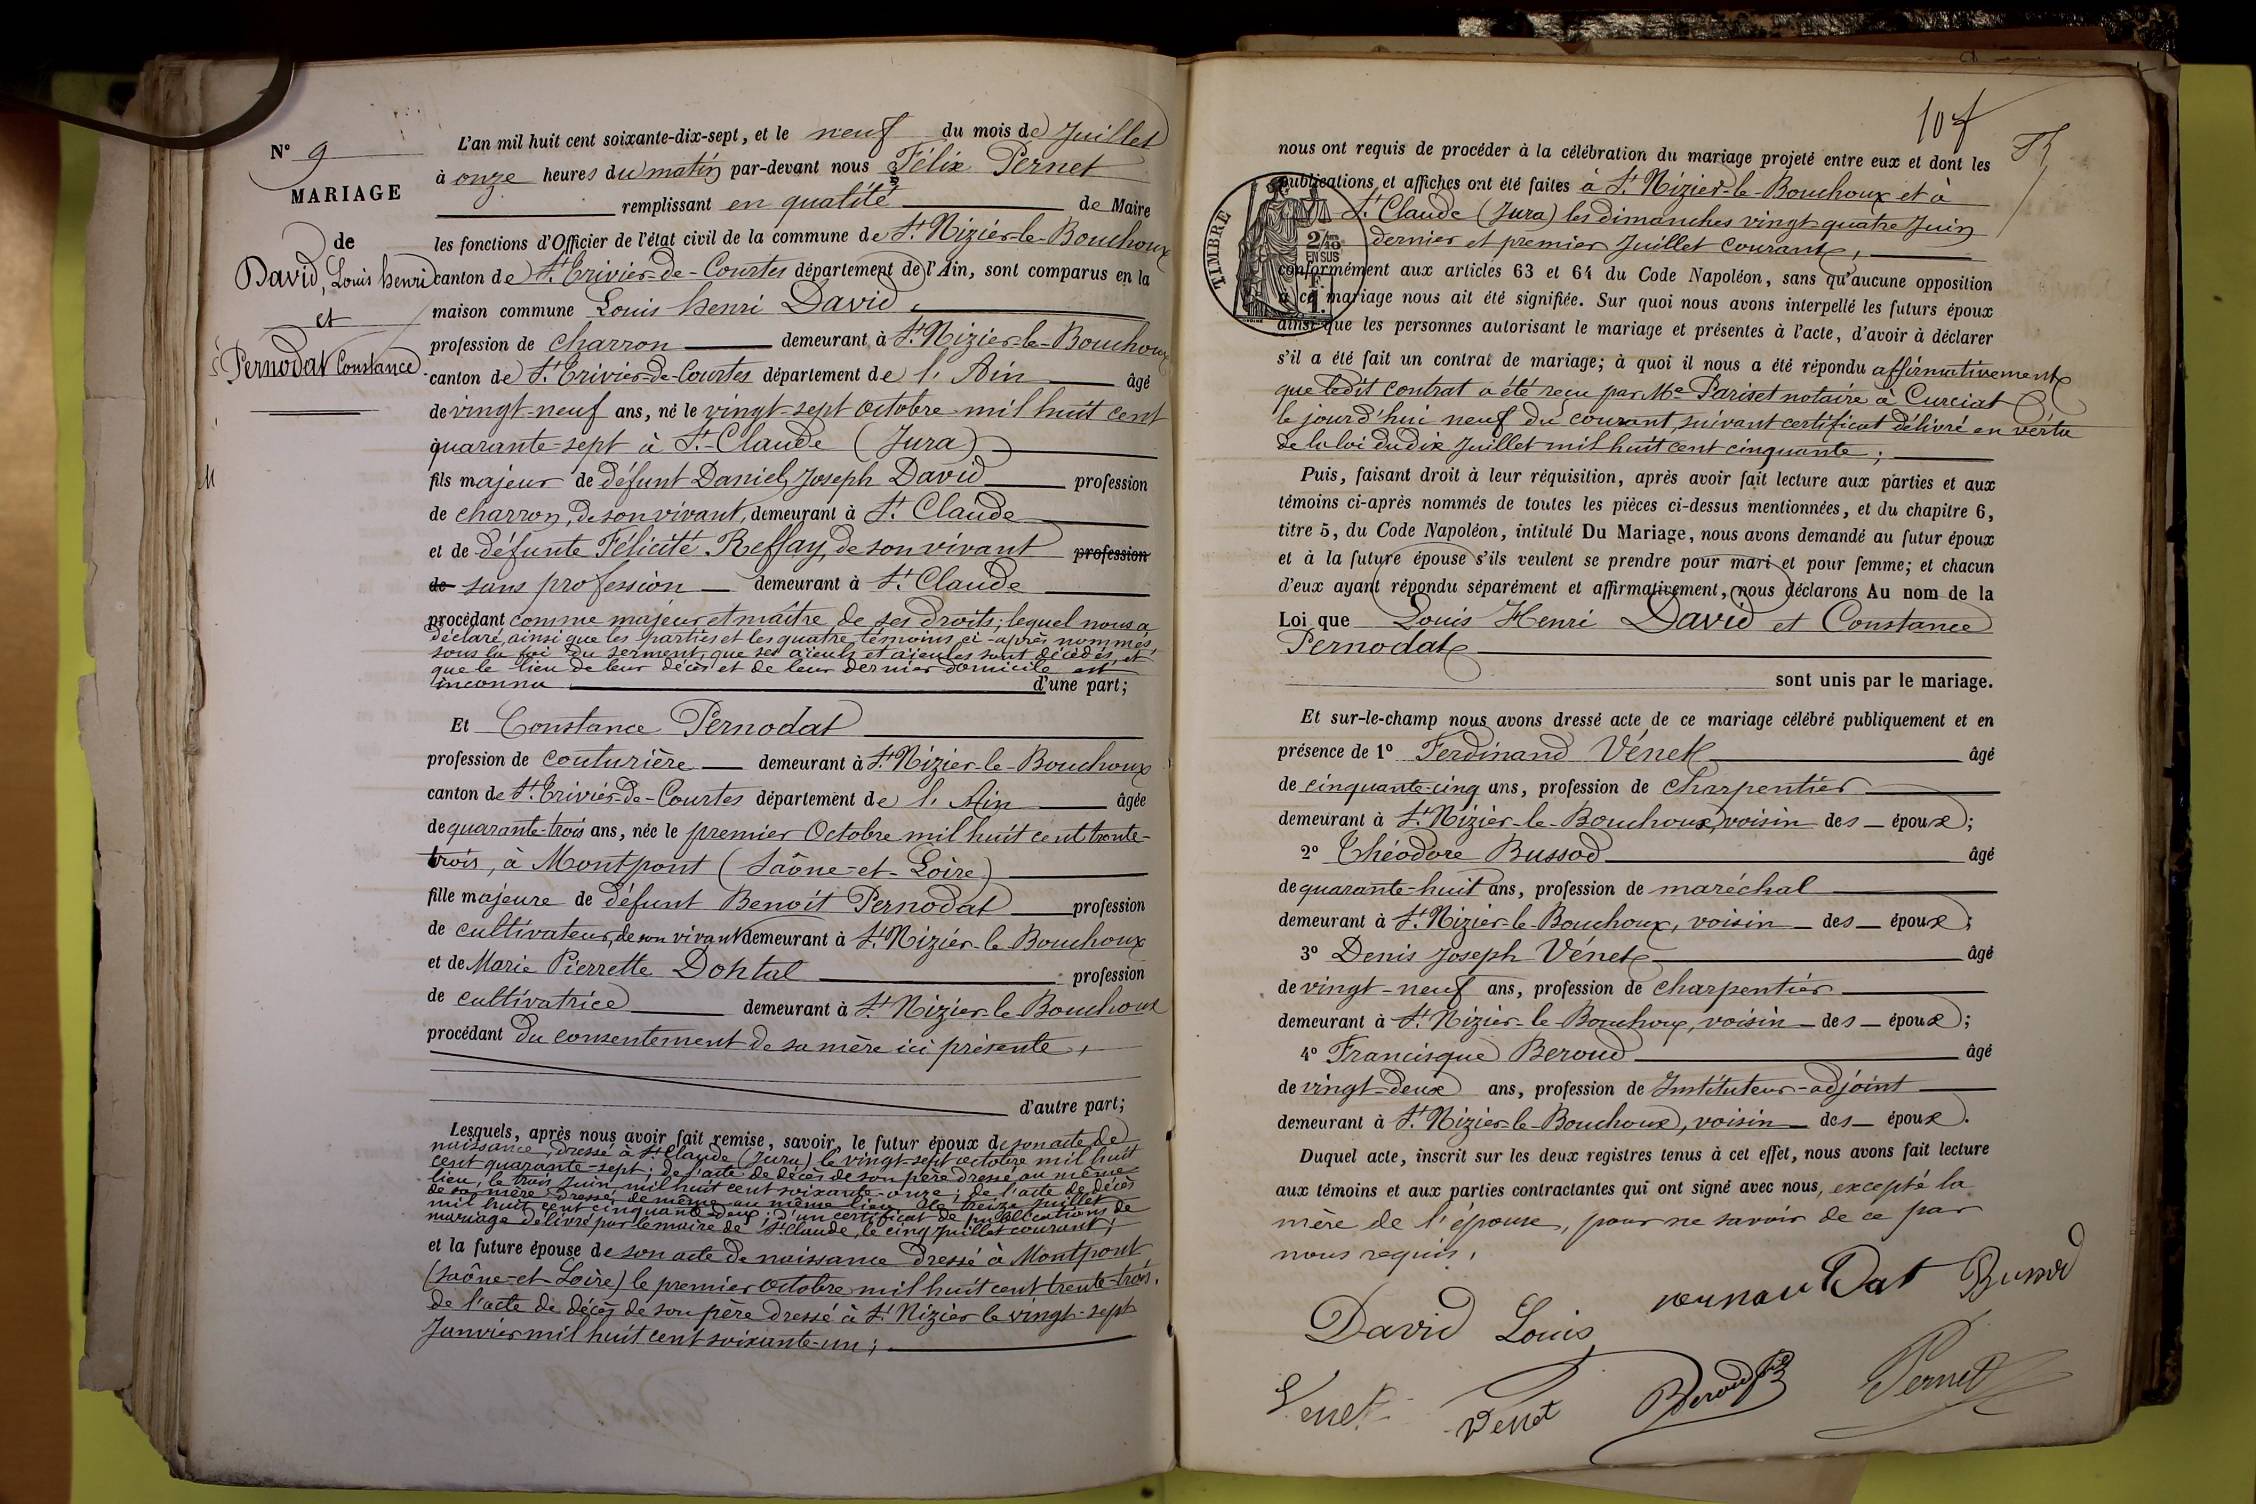 N° 9
MARIAGE
de
David, Louis henri
et
Pernodat Constance
L'an mil huit cent soixante-dix-sept, et le neuf du mois de Juillet
à onze heures du matin par-devant nous Félix Pernet
remplissant en qualité de Maire
les fonctions d'Officier de l'état civil de la commune de St Nizier-le-Bouchoux
canton de St Trivier-de-Courtes département de l'Ain, sont comparus en la
maison commune Louis henri David,
profession de charron demeurant à St Nizier-le-Bouchoux
canton de St Trivier-de-Courtes département de l'Ain âgé
de vingt-neuf ans, né le vingt-sept octobre mil huit cent
quarante-sept à St-Claude (Jura)
fils majeur de défunt Daniel Joseph David profession
de charron, de son vivant, demeurant à St Claude
et de défunte Félicité Reffay, de son vivant profession
de sans profession demeurant à St Claude
procédant comme majeur et maître de ses droits; lequel nous a
déclaré, ainsi que les parties et les quatre témoins ci-après nommés,
sous la foi du serment, que ses aïeuls et aïeules sont décédés, et
que le lieu de leur décès et de leur dernier domicile est
inconnu d'une part;
Et Constance Pernodat
profession de couturière demeurant à St Nizier-le-Bouchoux
canton de St Trivier-de-Courtes département de l'Ain âgée
de quarante-trois ans, née le premier Octobre mil huit cent trente-
trois, à Montpont (Saône-et-Loire)
fille majeure de défunt Benoît Pernodat profession
de cultivateur, de son vivant demeurant à St Nizier-le-Bouchoux
et de Marie Pierrette Donhtal profession
de cultivatrice demeurant à St Nizier-le-Bouchoux
procédant du consentement de sa mère ici présente,
d'autre part;
Lesquels, après nous avoir fait remise, savoir, le futur époux de son acte de
naissance, dressé à St Claude (Jura) le vingt-sept octobre mil huit
cent quarante-sept; de l'acte de décès de son père dressé au même
lieu, le trois Juin mil huit cent soixante-onze; de l'acte de décès
de sa mère dressé de même au même lieu, le treize Juillet
mil huit cent cinquante-deux; d'un certificat de publications de
mariage délivré par le maire de St Claude, le cinq juillet courant;
et la future épouse de son acte de naissance dressé à Montpont
(Saône-et-Loire) le premier octobre mil huit cent trente-trois.
de l'acte de décès de son père dressé à St Nizier le vingt-sept
Janvier mil huit cent soixante-un;
107
nous ont requis de procéder à la célébration du mariage projeté entre eux et dont les
publications et affiches ont été faites à St Nizier-le-Bouchoux et à
St Claude (Jura) les dimanches vingt-quatre Juin
dernier et premier Juillet courant,
TIMBRE
2/10 EN SUS
1 F.
conformément aux articles 63 et 64 du Code Napoléon, sans qu'aucune opposition
à ce mariage nous ait été signifiée. Sur quoi nous avons interpellé les futurs époux
ainsi que les personnes autorisant le mariage et présentes à l'acte, d'avoir à déclarer
s'il a été fait un contrat de mariage; à quoi il nous a été répondu affirmativement
que ledit contrat a été reçu par Me Pariset notaire à Curciat
le jourd'hui neuf du courant, suivant certificat délivré en vertu
de la loi du dix Juillet mil huit cent cinquante;
Puis, faisant droit à leur réquisition, après avoir fait lecture aux parties et aux
témoins ci-après nommés de toutes les pièces ci-dessus mentionnées, et du chapitre 6,
titre 5, du Code Napoléon, intitulé Du Mariage, nous avons demandé au futur époux
et à la future épouse s'ils veulent se prendre pour mari et pour femme; et chacun
d'eux ayant répondu séparément et affirmativement, nous déclarons Au nom de la
Loi que Louis Henri David et Constance
Pernodat
sont unis par le mariage.
Et sur-le-champ nous avons dressé acte de ce mariage célébré publiquement et en
présence de 1° Ferdinand Vénet âgé
de cinquante-cinq ans, profession de charpentier
demeurant à St Nizier-le-Bouchoux, voisin des époux;
2° Théodore Bussod âgé
de quarante-huit ans, profession de maréchal
demeurant à St Nizier-le-Bouchoux, voisin des époux;
3° Denis Joseph Vénet âgé
de vingt-neuf ans, profession de charpentier
demeurant à St Nizier-le-Bouchoux, voisin des époux;
4° Francisque Beroud âgé
de vingt-deux ans, profession de Instituteur-adjoint
demeurant à St Nizier-le-Bouchoux, voisin des époux.
Duquel acte, inscrit sur les deux registres tenus à cet effet, nous avons fait lecture
aux témoins et aux parties contractantes qui ont signé avec nous, excepté la
mère de l'épouse, pour ne savoir de ce par
nous requis.
pernaudat Bussod
David Louis
Venet Venet Beroud Pernet